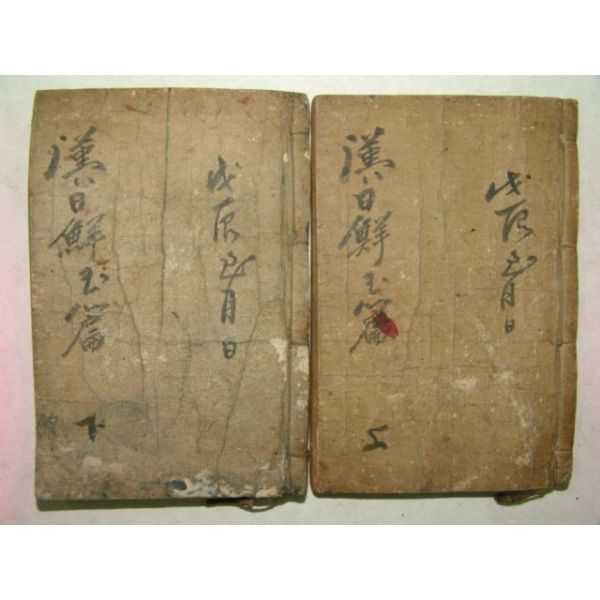 戊辰正月日
漢日鮮玉篇 上
戊辰正月日
漢日鮮玉篇 下